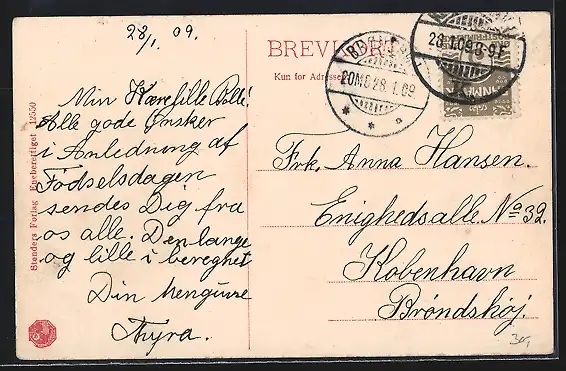 28/1. 09.
BREVKORT
Kun for Adressen
28.1.09.8-9F
20MB 28.1.09
Min Kære lille Pølle!
Alle gode Ønsker
i Anledning af
Födselsdagen
sendes Dig fra
os alle. Den lange
og lille i beregnet
Din
Thyra.
Frk. Anna Hansen.
Enighedsalle. No 32.
Kobenhavn
Bröndshöj.
Stenders Forlag Eneberettiget 12550
30,